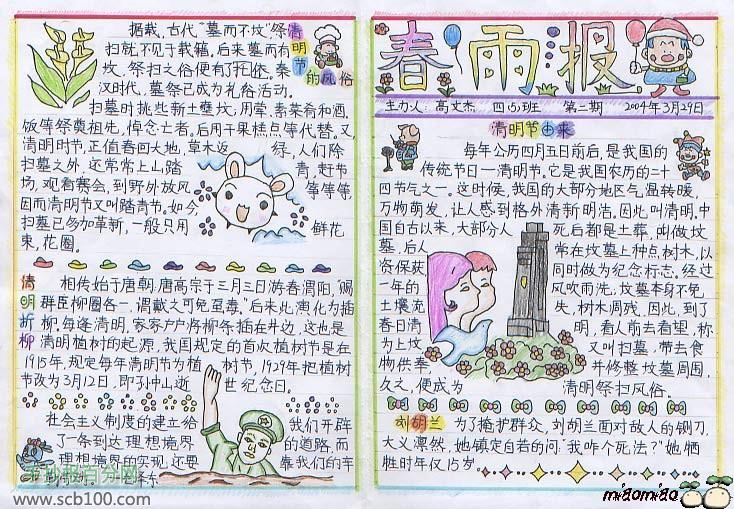 据载,古代“墓而不坟”祭
扫就不见于载籍,后来墓而有
坟,祭扫之俗便有了托依。秦
汉时代,墓祭已成为礼俗活动。
清明节的风俗
扫墓时挑些新土壅坟,用荤、素菜肴和酒、
饭等祭奠祖先,悼念亡者。后用干果糕点等代替,又
清明时节,正值春回大地,草木返绿,人们除
扫墓之外,还常常上山踏青,赶节
场,观看赛会,到野外放风筝等等,
因而清明节又叫踏青节。如今,
扫墓已多加革新,一般只用鲜花
束,花圈。
清明折柳
相传始于唐朝,唐高宗于三月三日游春渭阳,“赐
群臣柳圈各一,谓戴之可免虿毒。”后来此演化为插
柳,每逢清明,家家户户将柳条插在井边,这也是
清明植树的起源,我国规定的首次植树节是在
1915年,规定每年清明节为植树节,1929年把植树
节改为3月12日,即孙中山逝世纪念日。
社会主义制度的建立给我们开辟
了一条到达理想境界的道路,而
理想境界的实现,还要靠我们的辛
www.scb100.com
春雨报
主办人:高文杰 四(5)班 第二期 2009年3月29日
清明节由来
每年公历四月五日前后,是我国的
传统节日—清明节。它是我国农历的二十
四节气之一。这时候,我国的大部分地区气温转暖,
万物萌发,让人感到格外清新明浩。因此叫清明。中
国自古以来,大部分人死后都是土葬,叫做坟
墓,后人常在坟墓上种点树木,以
资保获同时做为纪念标志。经过
一年的风吹雨洗,坟墓本身不免
土壤流失,树木凋残,因此,到了
春日清明,看人前去看望,称
为上坟又叫扫墓,带去食
物供奉,并修整坟墓周围,
久之,便成为清明祭扫风俗。
刘胡兰
为了掩护群众,刘胡兰面对敌人的铡刀,
大义凛然,她镇定自若的问:“我咋个死法?”她牺
牲时年仅15岁。
miaomiao